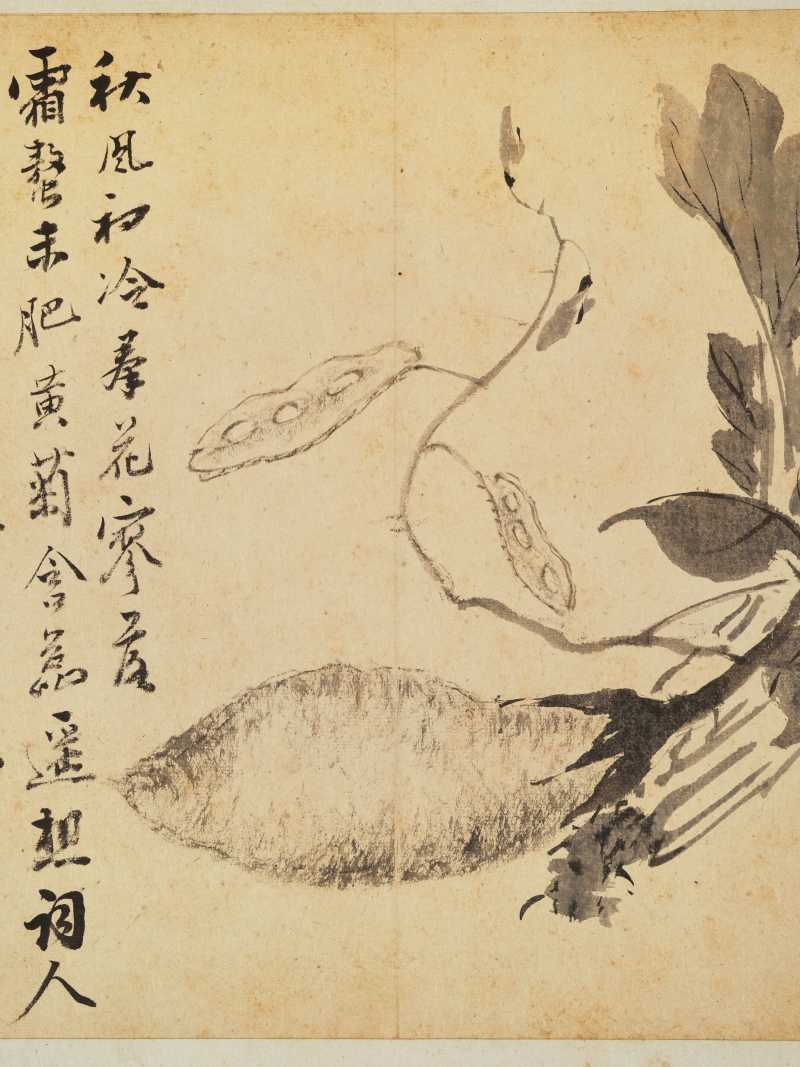 秋風初冷羣花寥落
霜螯未肥黄菊含蕊遥想詞人